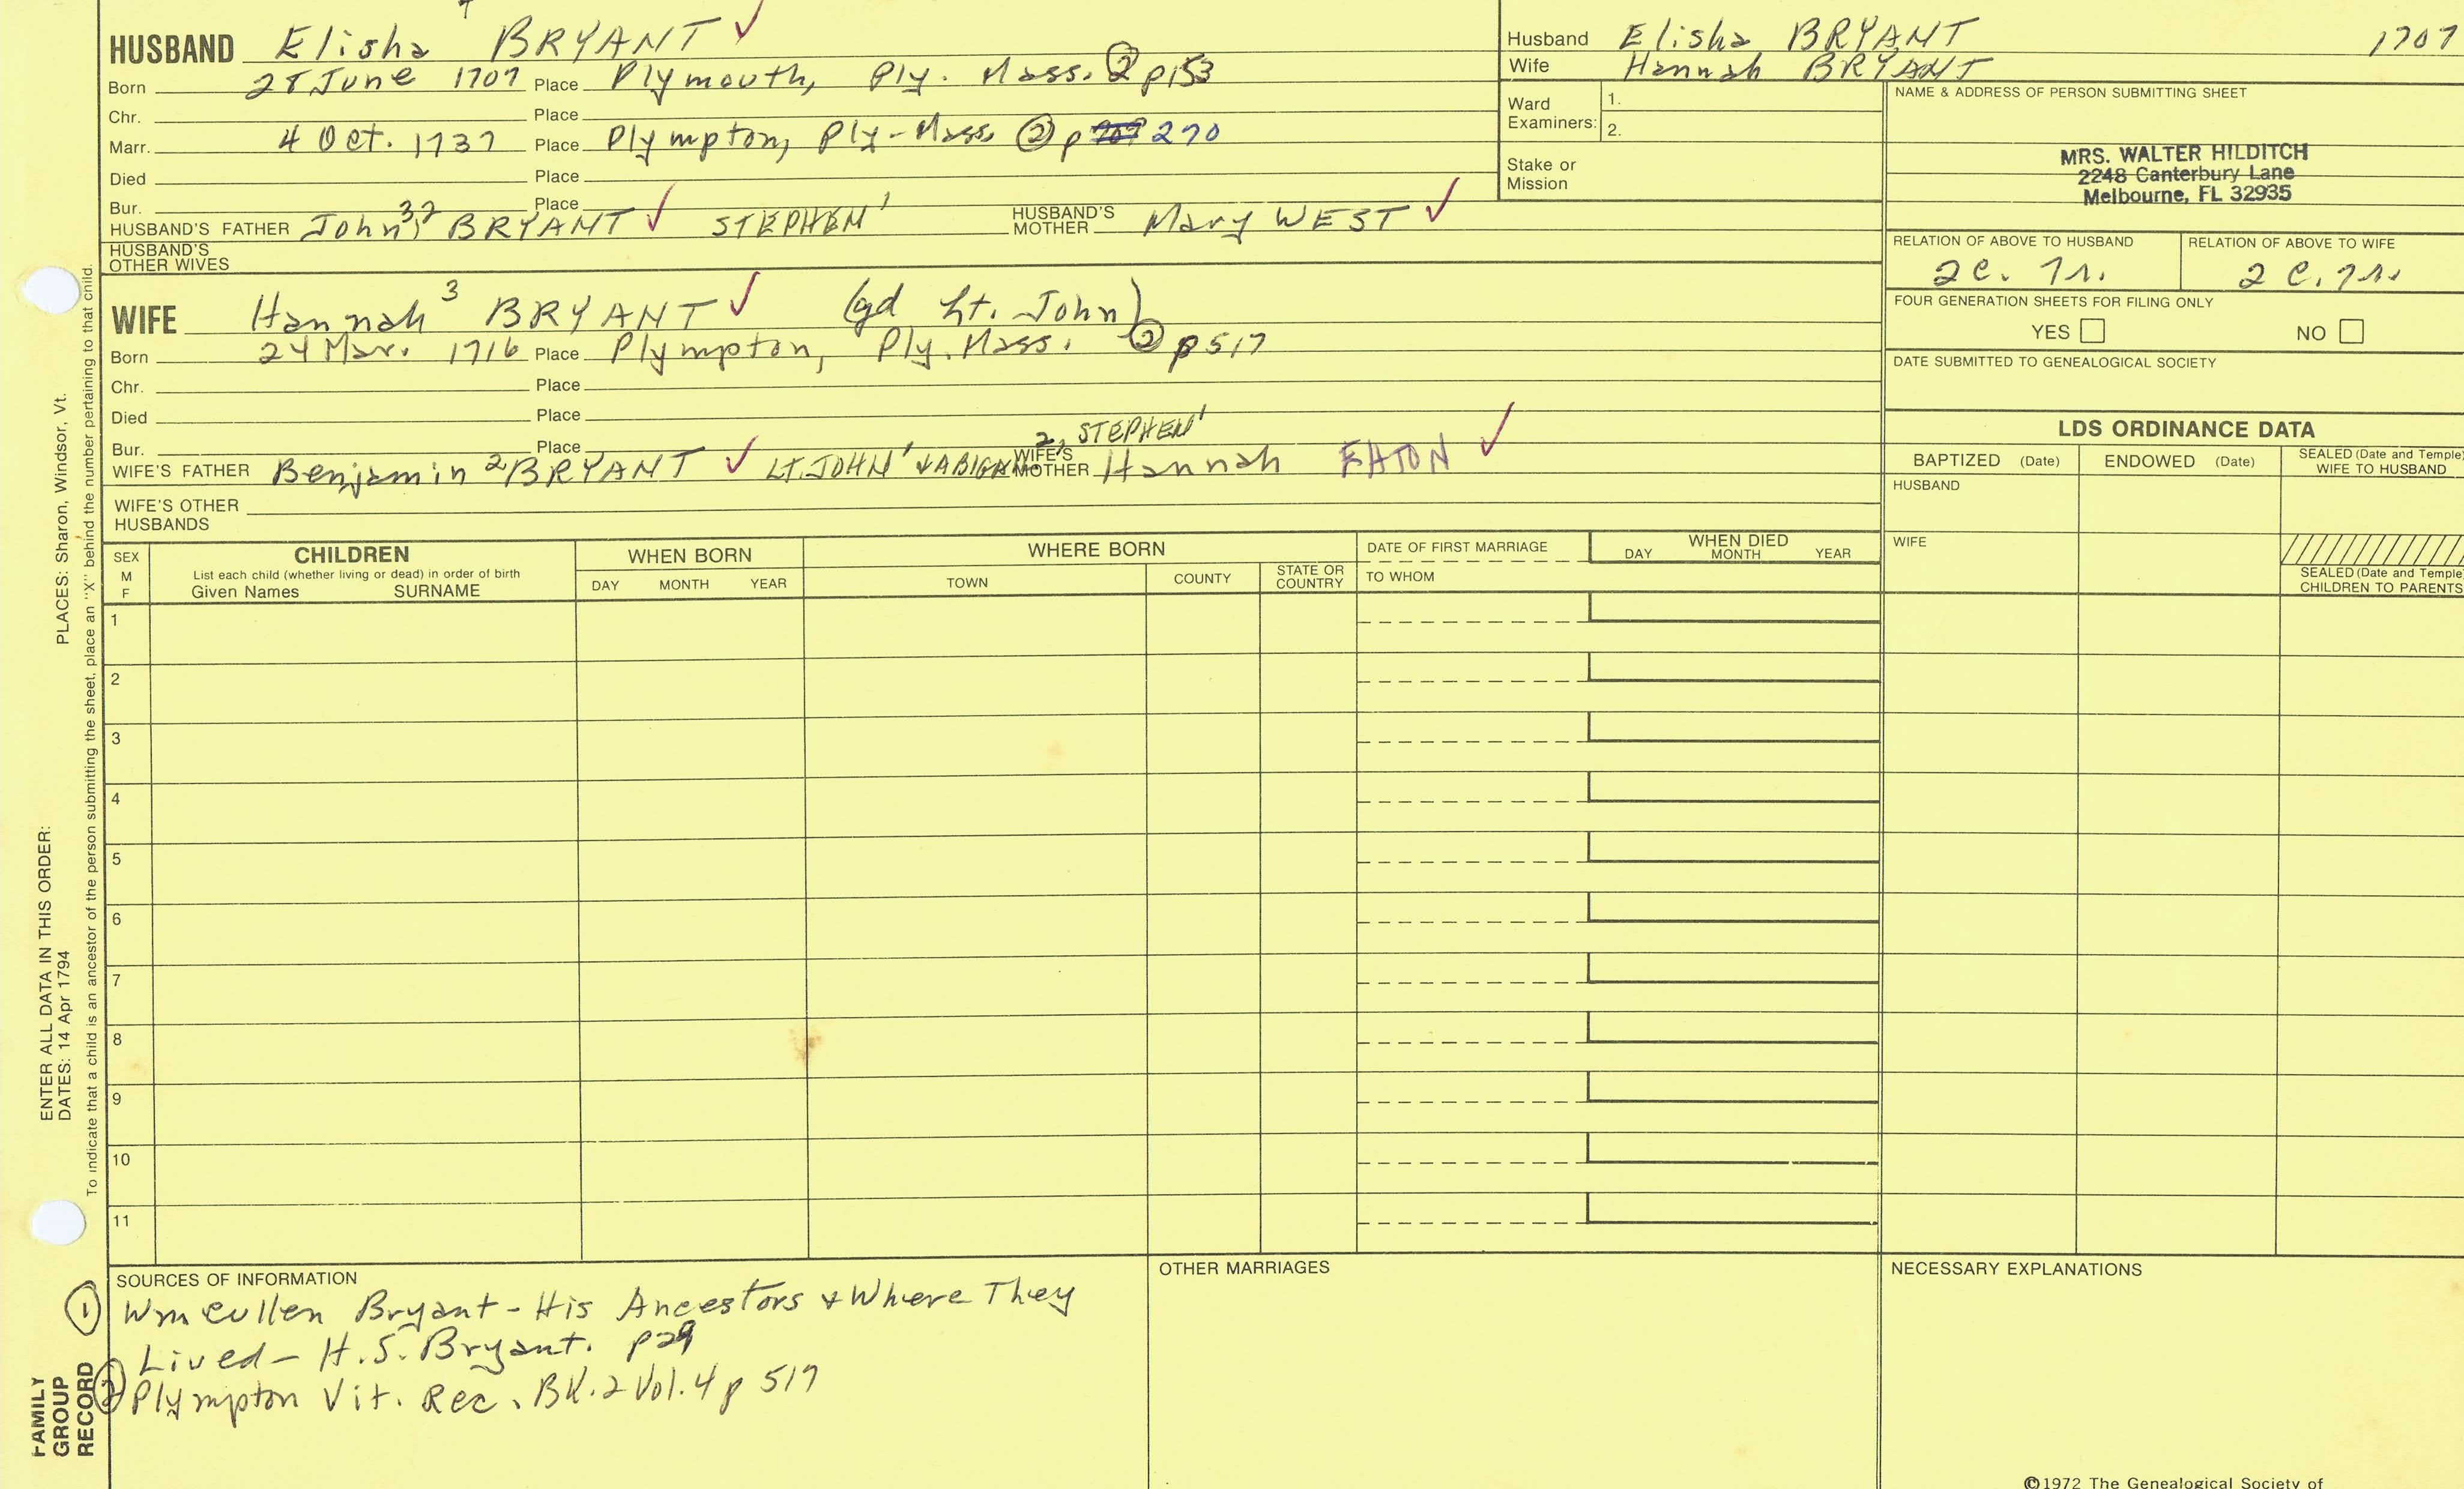 HUSBAND Elisha 4 BRYANT ✓
Born 28 June 1707 Place Plymouth, Ply. Mass. ② p153
Chr. Place
Marr. 4 Oct. 1737 Place Plympton, Ply-Mass. ② p 270
Died Place
Bur. Place
HUSBAND'S FATHER John 3,2 BRYANT ✓ STEPHEN 1 HUSBAND'S MOTHER Mary WEST ✓
HUSBAND'S OTHER WIVES
WIFE Hannah 3 BRYANT ✓ (gd Lt. John)
Born 24 Mar. 1716 Place Plympton, Ply. Mass. ② p517
Chr. Place
Died Place
2, STEPHEN 1
Bur. Place
WIFE'S FATHER Benjamin 2 BRYANT ✓ LT. JOHN 1 & ABIGAIL WIFE'S MOTHER Hannah EATON ✓
WIFE'S OTHER HUSBANDS
Husband Elisha BRYANT 1707
Wife Hannah BRYANT
Ward Examiners: 1.
2.
Stake or Mission
NAME & ADDRESS OF PERSON SUBMITTING SHEET
MRS. WALTER HILDITCH
2248 Canterbury Lane
Melbourne, FL 32935
RELATION OF ABOVE TO HUSBAND RELATION OF ABOVE TO WIFE
2c. 7r. 2 c. 7r.
FOUR GENERATION SHEETS FOR FILING ONLY
YES NO
DATE SUBMITTED TO GENEALOGICAL SOCIETY
LDS ORDINANCE DATA
BAPTIZED (Date) ENDOWED (Date) SEALED (Date and Temple) WIFE TO HUSBAND
HUSBAND
WIFE
SEALED (Date and Temple) CHILDREN TO PARENTS
SEX M F CHILDREN WHEN BORN WHERE BORN DATE OF FIRST MARRIAGE WHEN DIED
List each child (whether living or dead) in order of birth
Given Names SURNAME DAY MONTH YEAR TOWN COUNTY STATE OR COUNTRY TO WHOM DAY MONTH YEAR
1
2
3
4
5
6
7
8
9
10
11
SOURCES OF INFORMATION
① Wm Cullen Bryant - His Ancestors & Where They
Lived - H.S. Bryant. p29
② Plympton Vit. Rec. BK. 2 Vol. 4 p 517
OTHER MARRIAGES
NECESSARY EXPLANATIONS
©1972 The Genealogical Society of
PLACES: Sharon, Windsor, Vt.
ENTER ALL DATA IN THIS ORDER:
DATES: 14 Apr 1794
To indicate that a child is an ancestor of the person submitting the sheet, place an "X" behind the number pertaining to that child.
FAMILY
GROUP
RECORD